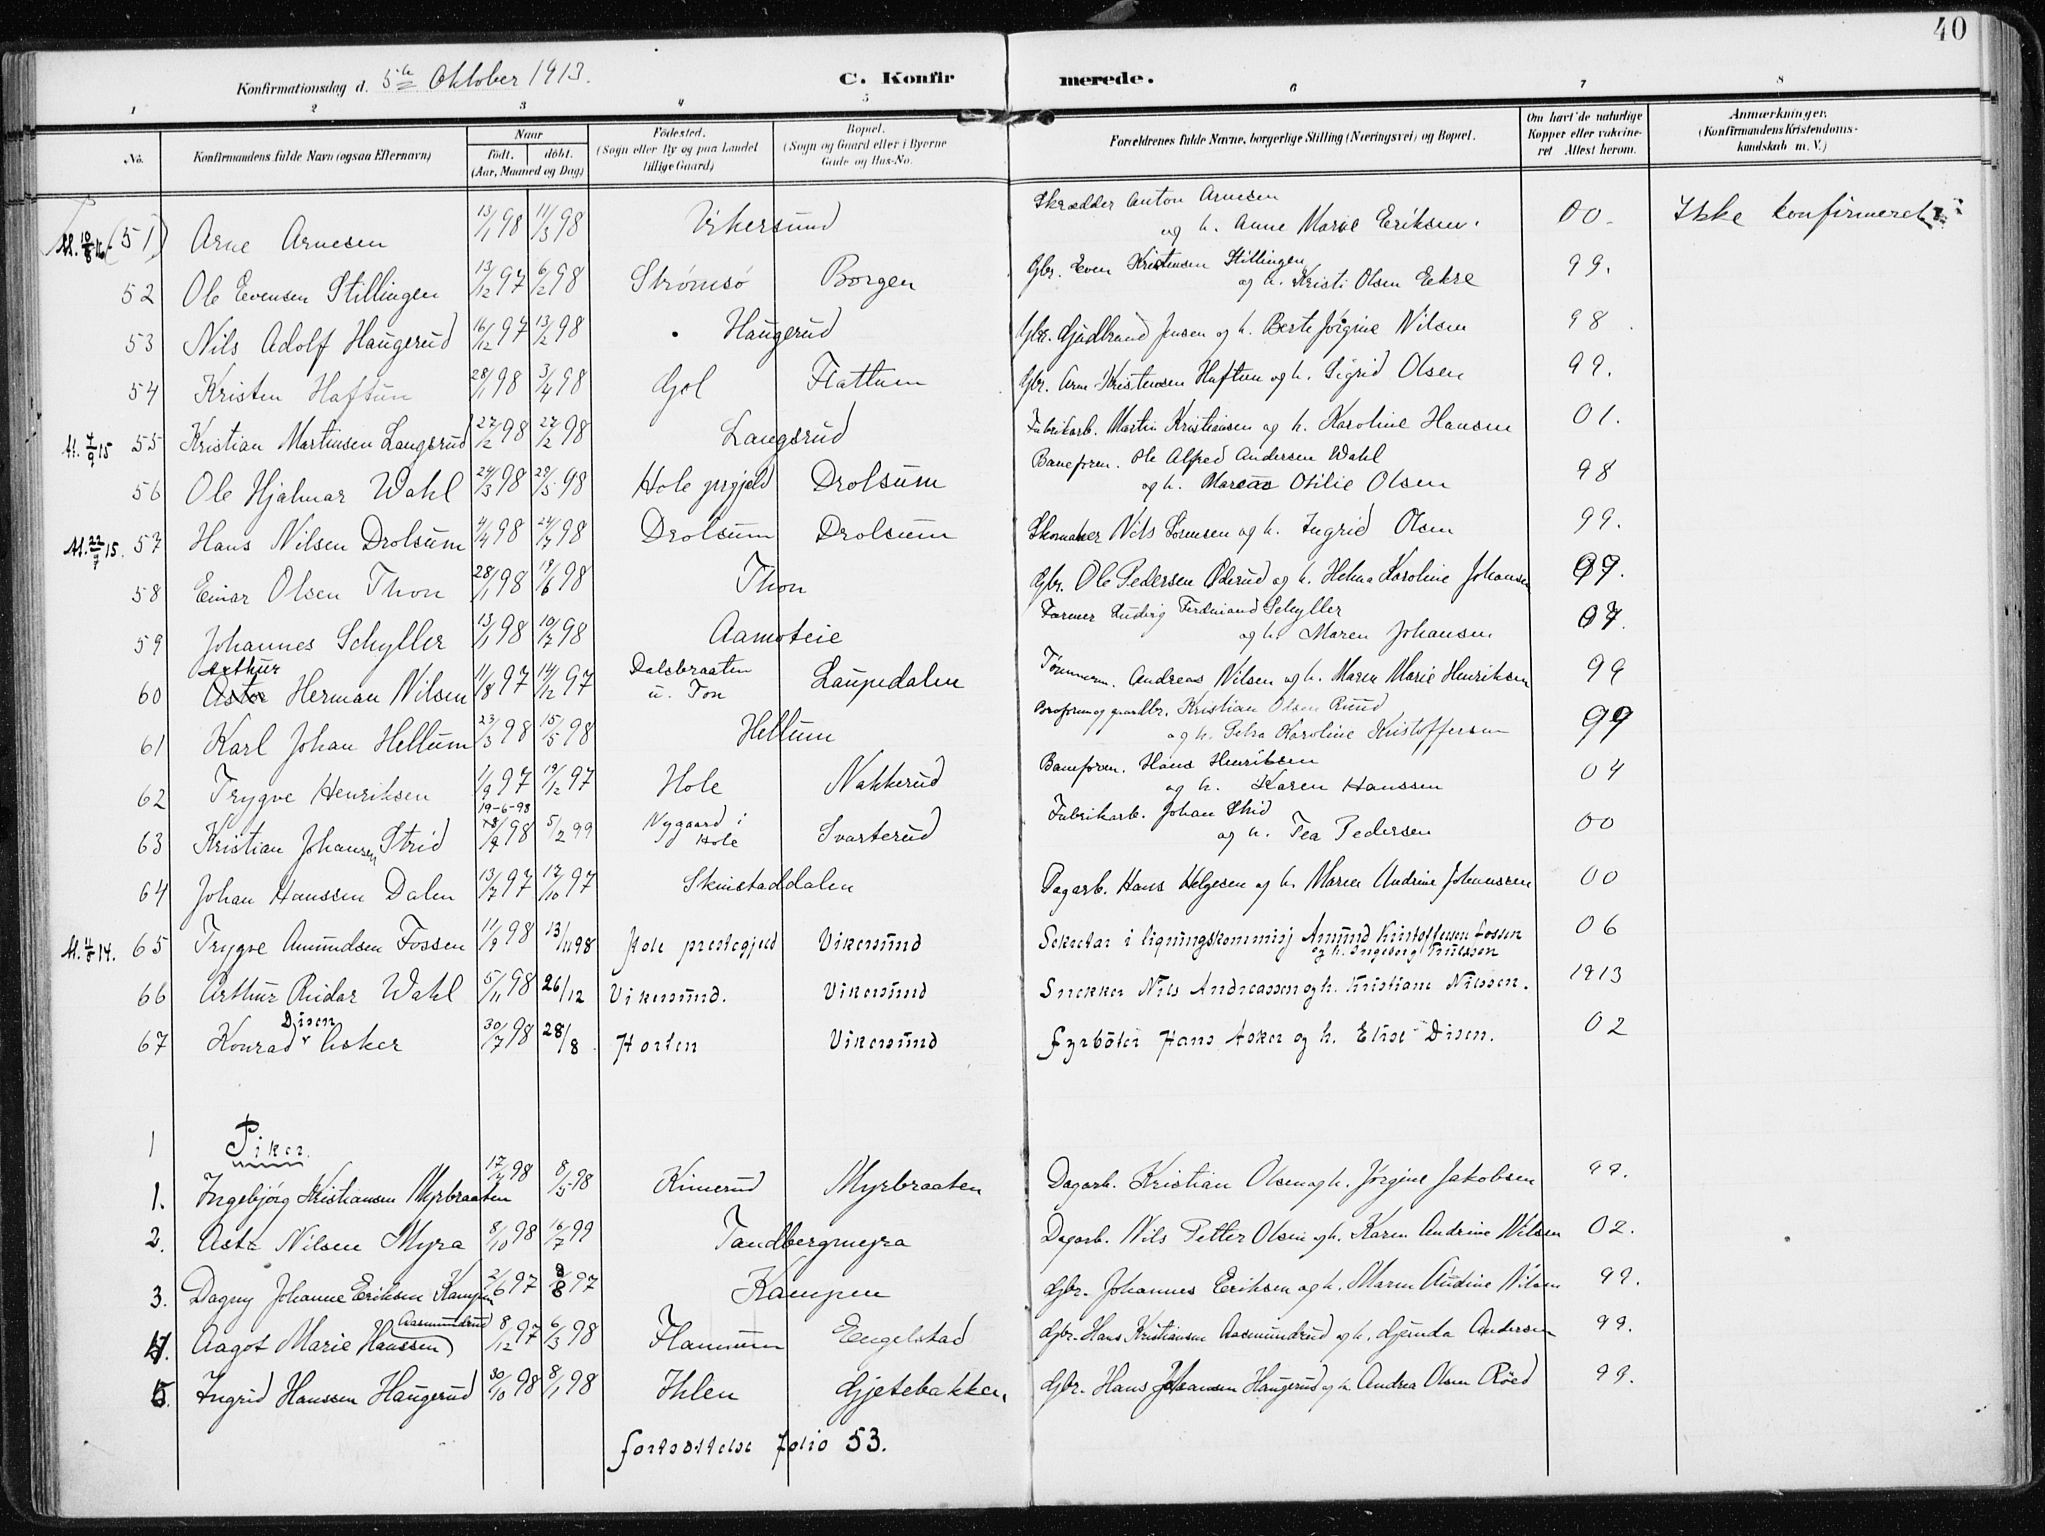 40
Konfirmationsdag d. 5te Oktober 1913. C. Konfirmerede.
1 2 3 4 5 6 7 8
No. Konfirmandens fulde Navn (ogsaa Efternavn) Naar født. døbt. (Aar, Maaned og Dag) Fødested. (Sogn eller By og paa Landet tillige Gaard) Bopæl. (Sogn og Gaard eller i Byerne Gade og Hus-No. Forældrenes fulde Navne, borgerlige Stilling (Næringsvei) og Bopæl. Om havt de naturlige Kopper eller vakcineret Attest herom. Anmærkninger. (Konfirmandens Kristendomskundskab m. V.)
At. 10/8 16 (51) Arne Arnesen 13/1 98 11/3 98 Vikersund Skrædder Anton Arnesen og h. Anne Marie Eriksen. 00. Ikke konfirmeret
52 Ole Evensen Stillingen 13/12 97 6/2 98 Strømsø Borgen Gbr. Even Kristensen Stillingen og h. Kristi Olsen Ekre 99.
53 Nils Adolf Haugerud 16/12 97 13/2 98 Haugerud Gbr. Gudbrand Jensen og h. Berte Jørgine Nilsen 98
54 Kristen Haftun 28/1 98 3/4 98 Gol Flattum Gbr. Arne Kristensen Haftun og h. Sigrid Olsen 99.
At. 7/9 15 55 Kristian Martinsen Langsrud 27/2 98 27/2 98 Langsrud Fabrikarb. Martin Kristiansen og h. Karoline Hansen 01.
56 Ole Hjalmar Wahl 24/3 98 29/5 98 Hole prgjeld Drolsum Baneform. Ole Alfred Andersen Wahl og h. Maren Otilie Olsen 98
At. 22/7 15. 57 Hans Nilsen Drolsum 4/4 98 24/7 98 Drolsum Drolsum Skomaker Nils Sørensen og h. Ingrid Olsen 99.
58 Einar Olsen Thon 28/1 98 19/6 98 Thon Gbr. Ole Pedersen Øderud og h. Helna Karoline Johansen 99.
59 Johannes Schyller 13/1 98 10/7 98 Aamoteie Farmer Ludvig Ferdinand Schyller og h. Maren Johansen. 07.
60 Arthur Herman Nilsen 11/8 97 14/12 97 Dalsbraaten u. Ton Laupedalen Tømmerm. Andreas Nilsen og h. Maren Marie Henriksen 99
61 Karl Johan Hellum 23/3 98 15/5 98 Hellum Kristian Olsen Ruud og h. Petra Karoline Kristoffersen 99
62 Trygve Henriksen 1/9 97 19/12 97 Hole Nakkerud Baneform. Hans Henriksen og h. Karen Hanssen 04
63 Kristian Johansen Strid 19-6-98 98 5/2 99 Nygaard i Hole Svarterud Fabrikarb. Johan Strid og h. Tea Pedersen 00
64 Johan Hanssen Dalen 13/7 97 17/10 97 Skinstaddalen Dagarb. Hans Helgesen og h. Maren Andrine Johanssen 00
At. 4/8 14. 65 Trygve Amundsen Fossen 11/9 98 13/11 98 Hole prestegjeld Vikersund Sekretær i ligningskommisj Amund Kristoffersen Fossen og h. Ingeborg Knudssen 06
66 Arthur Reidar Wahl 5/11 98 26/12 Vikersund. Vikersund Snekker Nils Andreassen og h. Kristiane Nilssen. 1913
67 Konrad Disen Asker 30/7 98 28/8 Horten Vikersund Fyrbøter Hans Asker og h. Elise Disen. 02
1 Piker.
1. Ingebjørg Kristiansen Myrbraaten 17/4 98 8/5 98 Kimerud Myrbraaten Dagarb. Kristian Olsen og h. Jørgine Jakobsen 99.
2. Asta Nilsen Myra 8/10 98 16/7 99 Tandbergmyra Dagarb. Nils Petter Olsen og h. Karen Andrine Nilsen 02.
3. Dagny Johanne Eriksen Kampen 2/6 97 8/8 97 Kampen Gbr. Johannes Eriksen og h. Maren Andrine Nilsen 99.
4. Aagot Marie Hanssen Aasmundrud 8/12 97 6/3 98 Flannum Engelstad Gbr. Hans Kristiansen Aasmundrud og h. Gunda Andersen 99.
5. Ingrid Hanssen Haugerud 30/10 98 8/1 98 Ihlen Gjetebakken. Gbr. Hans Johansen Haugerud og h. Andrea Olsen Røed 99.
fortsættelse folio 53.